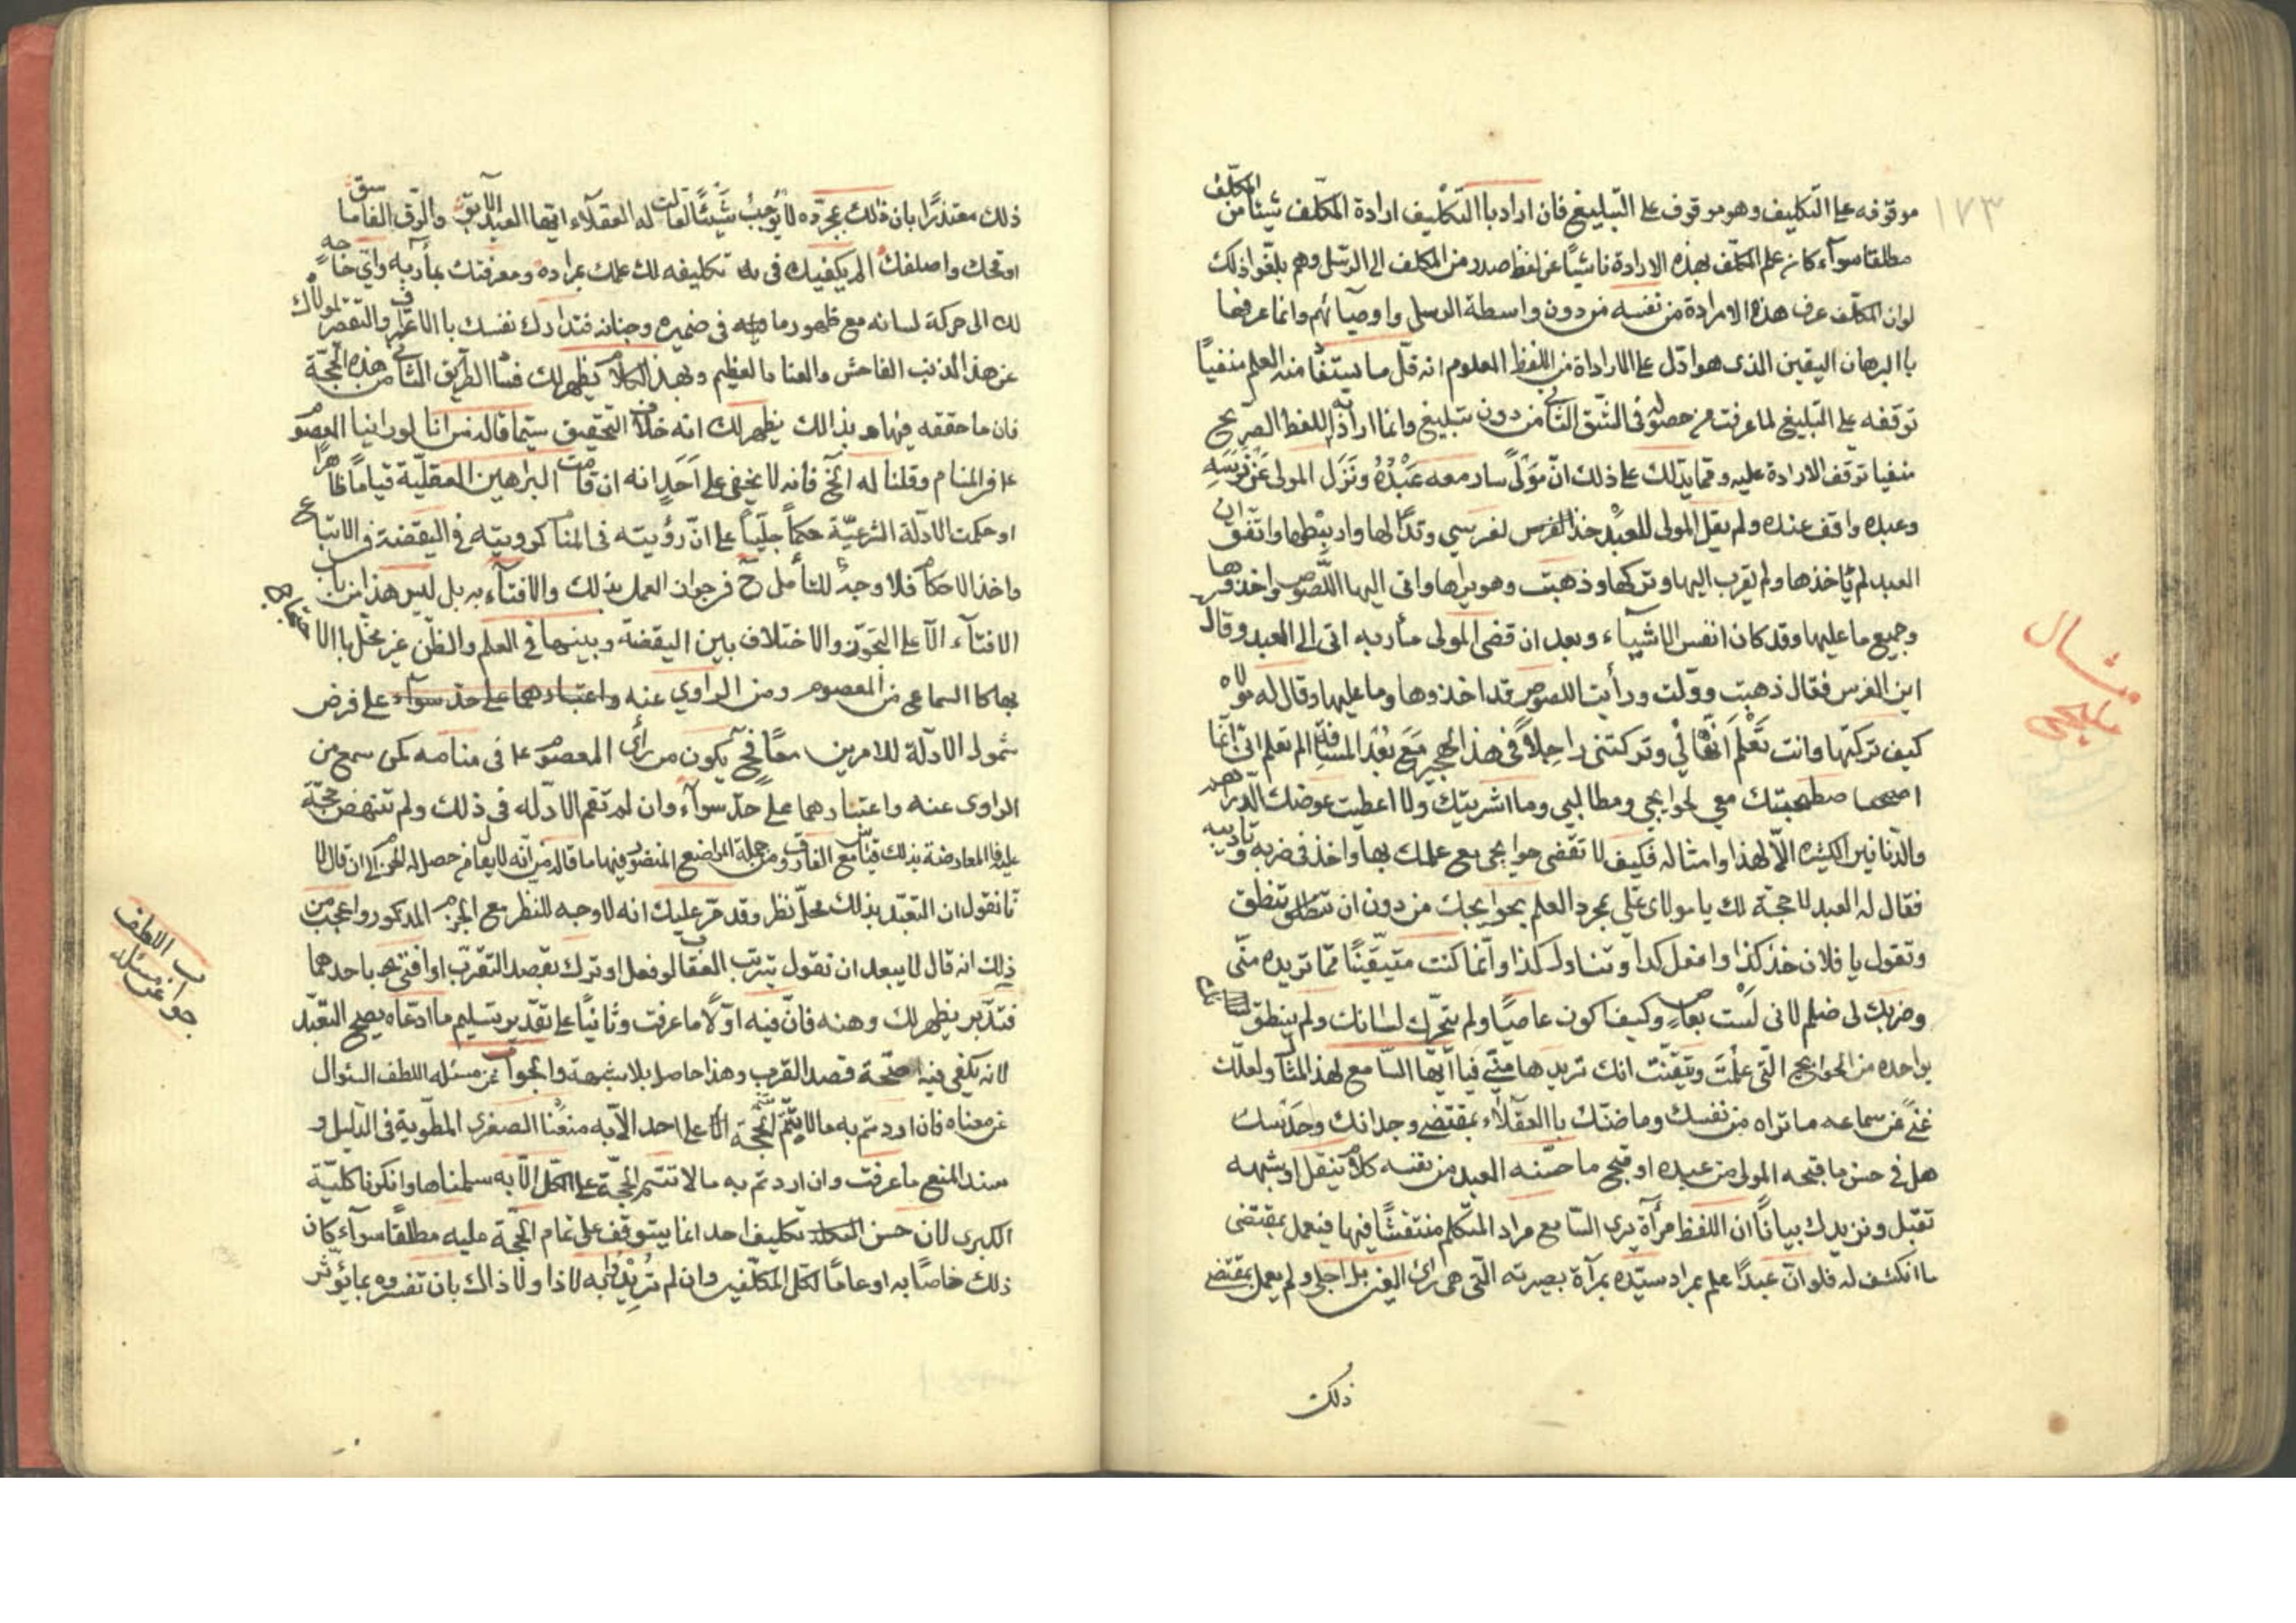 ١٧٣
موقوفه على التكليف وهو موقوف على التبليغ فان اراد باالتكليف ارادة المكلّف شيئا من المكلّف
مطلقا سوآء كان علم المكلّف بهذه الارادة ناشياً عن لفظ صدر من المكلف الى الرسل وهم بلّغوا ذلك
لوان المكلّف عرف هذه الارادة من نفسه من دون واسطة الرسل واوصيائهم وانما عرفها
باالبرهان اليقين الذى هو ادل على الارادة من اللفظ المعلوم انه قلّ ما يستفا منه العلم منفياً
توقفه على التبليغ لما عرفت من حصوله فى الشّق الثانى من دون تبليغ وانما ارادته اللفظ الصريح
منفيا توقف الارادة عليه ومما يدلك على ذلك انّ مَوْلىً سار معه عَبْدُهُ ونَزَل المولى عَنْ فَرَسَهِ
وعبده واقف عنده ولم يقل المولى للعبد خذ الفرس لفرسي وتداً لها واربطها واتفق ان
العبد لم ئاخذها ولم يقرب اليها وتركها وذهبت وهو يراها واتى اليها اللّصوص واخذوها
وجميع ما عليها وقد كان انفس الاشيآء وبعد ان قضى المولى مأربه اتى الى العبد وقال
اين الفرس فقال ذهبت وولّت ورأيت اللصوص قد اخذوها وما عليها وقال له مولاه
كيف تركتها وانت تَعْلَم اَنَّهَا لي وتركتنى راحِلاً فى هذا الهجير مَعَ بُعْد المسافة الم تعلم انى انما
اصطحبتك معي لحوايجي ومطالبي وما اشريتك ولا اعطيت عوضك الدراهم
والدّنانير الكثيره الّا لهذا وامثاله فكيف لا تقضى حوايجى مع علمك بها واخذ فى ضربه وتاديبه
فقال له العبد لا حجّة لك يا مولاى علّى بمجرد العلم بحوايجك من دون ان تنطق
وتقول يا فلان خذ كذا وافعل كدا وتناول كذا وانّما كنت متيقّينًا ممّا تريده منّى
وضربك لى ظلم لانى لَسْت بعاصٍ وكيف اكون عاصيًا ولم يتحرّك لسانك ولم ينطق
بواحده من الحوايج الّتى علمْتَ وتيقّنت انك تريدها منّي فيا ايّها السّامع لهذا المثال ولعلك
غنىً عن سماعه ما تراه من نفسك وما ظنّك باالعقلآء بمقتضى وجدانك وحَدَسك
هل فى حسن ما قبحه المولى من عبده او قبح ما حسّنه العبد من نفسه كلام ينقل او بشبهه
تقبّل ونزيدك بياناً ان اللفظ مرأة يرى السّامع مراد المتكلم منتقشًا فيها فيعمل بمقتضى
ما انكشف له فلو انّ عبدًا علم بمراد سيّده بمرآة بصيرته الّتى هى رأى العين بل اجلى ولم يعمل بمقتضى
ذلك
مثال
مليحى
ذلك معتذرًا بان ذلك بمجرّده لا يُوْجِبُ شَيئًا لقالت له العقلآء ايّها العبد الآبق والوقّ الفاسق ما
اوقحك واصلفك الم يكفيك فى تكليفه لك علمك بمراده ومعرفتك بمأربه واىّ حاجةٍ
لك الى حركة لسانه مع ظهور ما فى ضميره وجنانه فتدارك نفسك باالاعتراف والتقصر لمولاك
عن هذا الذنب الفاحش والعنا العظيم وبهذا الكلام يظهر لك فسا الطريق الثانى من هذه الحجّة
فان ما حققه فيها هو بذالك يظهر لك انه خلاف التّحقيق سيّما قاله من انا لو رانيا المعصوم
ع فى المنام وقلنا له الخ فانه لا يخفى على اَحَدٍ انه ان قامت البراهين العقلّية قياماً ظاهراً
او حكمت الادلّة الشرعيّة حكماً جليّاً على انّ رؤيته فى المنام كرويته فى اليقضة فى الاتباع
واخذ الاحكام فلا وجه للتأمل ح فى جواز العمل بذلك والافتآء به بل ليس هذا من باب
الافتآء الّا على التجوّز والاختلاف بين اليقضة وبينها فى العلم والظّن غير مخلّ باالاحتجاج
بها كا السماعى من المعصوم ومن الراوي عنه واعتبارهما على حدّ سوآء على فرض
شمول الادلّة للامرين معًا فح يكون من رأى المعصوم ع فى منامه كمن سمع من
الراوى عنه واعتبارهما على حدّ سوآء وان لم تقم الادلّه فى ذلك ولم تنهض حجّة
عليه فا المعارضة بذلك قياس مع الفارق ومن جملة المواضع المنضور فيها ما قاله من انّه لا يقام حصل له الجزم الى ان قال لا
نا نقول ان التعبّد بذلك محلّ نظر وقد مرّ عليك انه لا وجه للنظر مع الجزم المذكور واعجب من
ذلك انه قال لا يبعد ان نقول بترتب العقاب لو فعل او ترك بقصد التقرب او افتى به باحدهما
فتدّبر يظهر لك وهنه فانّ فيه اوّلًا ما عرفت وثانياً على تقدير تسليم ما ادّعاه يصح التعبّد
لانه يكفى فيه صحّة قصد القرب وهذا حاصل بلا شبهة والجواب عن مسئله اللطف السّوال
عن معناه فان اردتم به ما لا يتّم الحجّة على احد الّا به منعْنا الصغرى المطّوية فى الدليل و
سند المنع ما عرفت وان اردتم به ما لا تتمّ الحجّة على الكلّ الّا به سلمناها وانكرنا كليّة
الكبرى لان حسن تكليف احد انما يتوقف على تمام الحجّة عليه مطلقًا سوآء كان
ذلك خاصًا به او عامًا لكلّ المكلّفين وان لم تُرِيْدُوا به لا ذا ولا ذاك بان تفسروه بما يؤثّر
جواب اللطف
عن مسئله